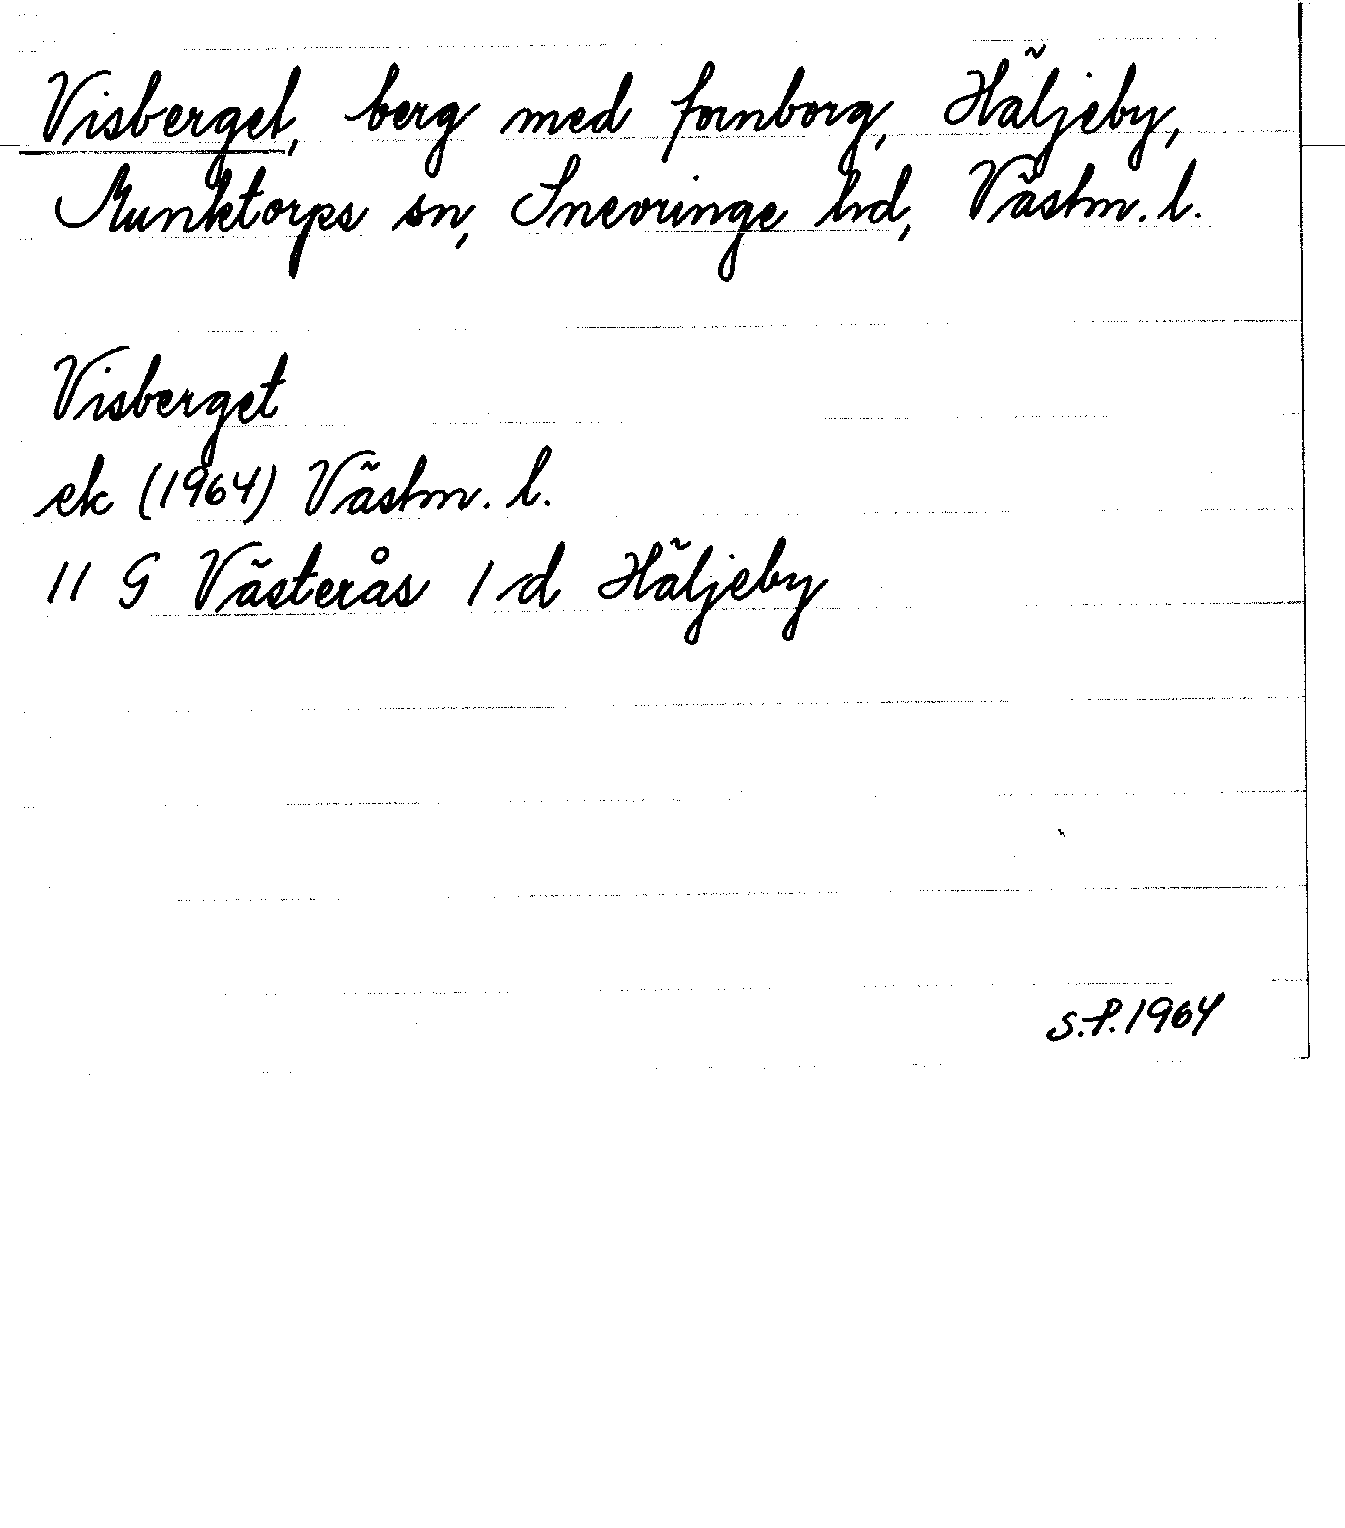 Visberget, berg med fornborg, Häljeby,
Munktorps sn, Snevringe hd, Västm. l.
Visberget
ek (1964) Västm. l.
11 G Västerås 1 d Häljeby
S.P. 1964